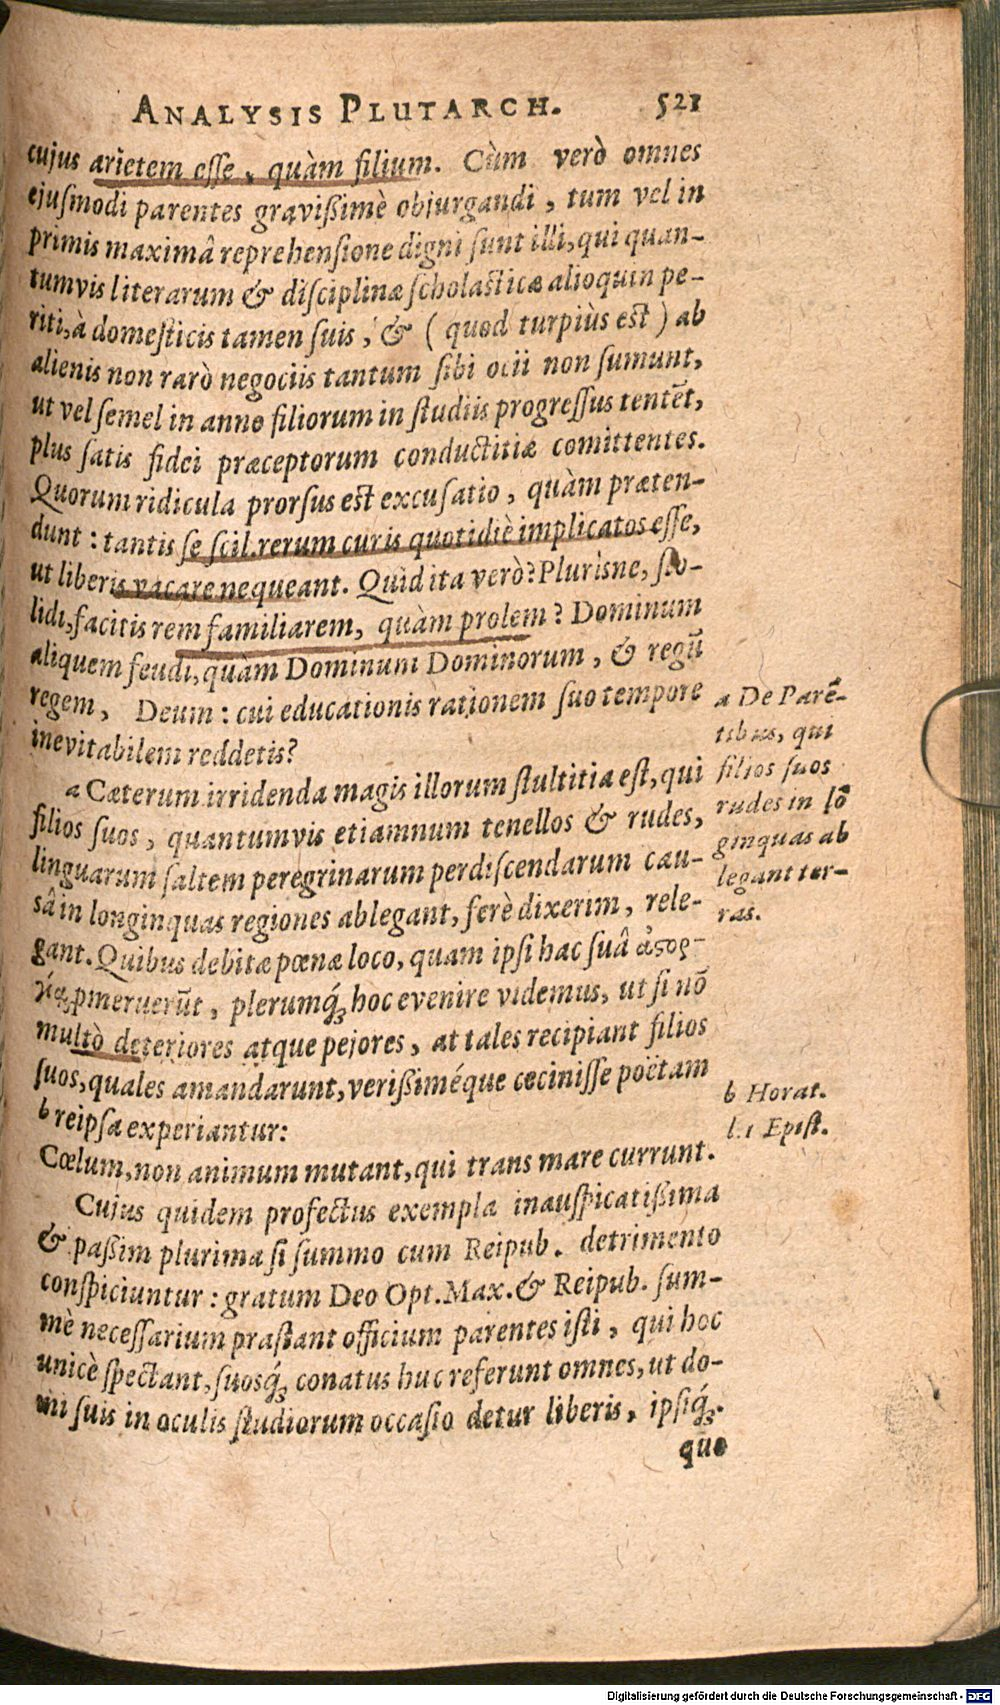 ANALYSIS PLUTARCH. 521
cujus arietem esse, quàm filium. Cùm verò omnes
ejusmodi parentes gravißimè objurgandi, tum vel in
primis maximâ reprehensione digni sunt illi, qui quan-
tumvis literarum & disciplinæ scholasticæ alioquin pe-
riti, à domesticis tamen suis, & (quod turpiùs est) ab
alienis non rarò negociis tantum sibi ocii non sumunt,
ut vel semel in anno filiorum in studiis progressus tentēt,
plus satis fidei præceptorum conductitiæ comittentes.
Quorum ridicula prorsus est excusatio, quàm præten-
dunt: tantis se scil. rerum curis quotidiè implicatos esse,
ut liberis vacare nequeant. Quid ita verò? Plurisne, sto-
lidi, facitis rem familiarem, quàm prolem? Dominum
aliquem feudi, quàm Dominum Dominorum, & regū
regem, Deum: cui educationis rationem suo tempore
inevitabilem reddetis?
a Cæterum irridenda magis illorum stultitia est, qui
filios suos, quantumvis etiamnum tenellos & rudes,
linguarum saltem peregrinarum perdiscendarum cau-
sâ in longinquas regiones ablegant, ferè dixerim, rele-
gant. Quibus debitæ pœnæ loco, quam ipsi hac suâ ἀστορ-
γίᾳ pmeruerūt, plerumq́ue hoc evenire videmus, ut si nō
multò deteriores atque pejores, at tales recipiant filios
suos, quales amandarunt, verißiméque cecinisse poëtam
b reipsa experiantur:
Cœlum, non animum mutant, qui trans mare currunt.
Cujus quidem profectus exempla inauspicatißima
& paßim plurima si summo cum Reipub. detrimento
conspiciuntur: gratum Deo Opt. Max. & Reipub. sum-
mè necessarium præstant officium parentes isti, qui hoc
unicè spectant, suosq́ue conatus huc referunt omnes, ut do-
mi suis in oculis studiorum occasio detur liberis, ipsiq́ue.
que
a De Parē-
tibus, qui
filios suos
rudes in lō
ginquas ab
legant ter-
ras.
b Horat.
l.1 Epist.
Digitalisierung gefördert durch die Deutsche Forschungsgemeinschaft - DFG